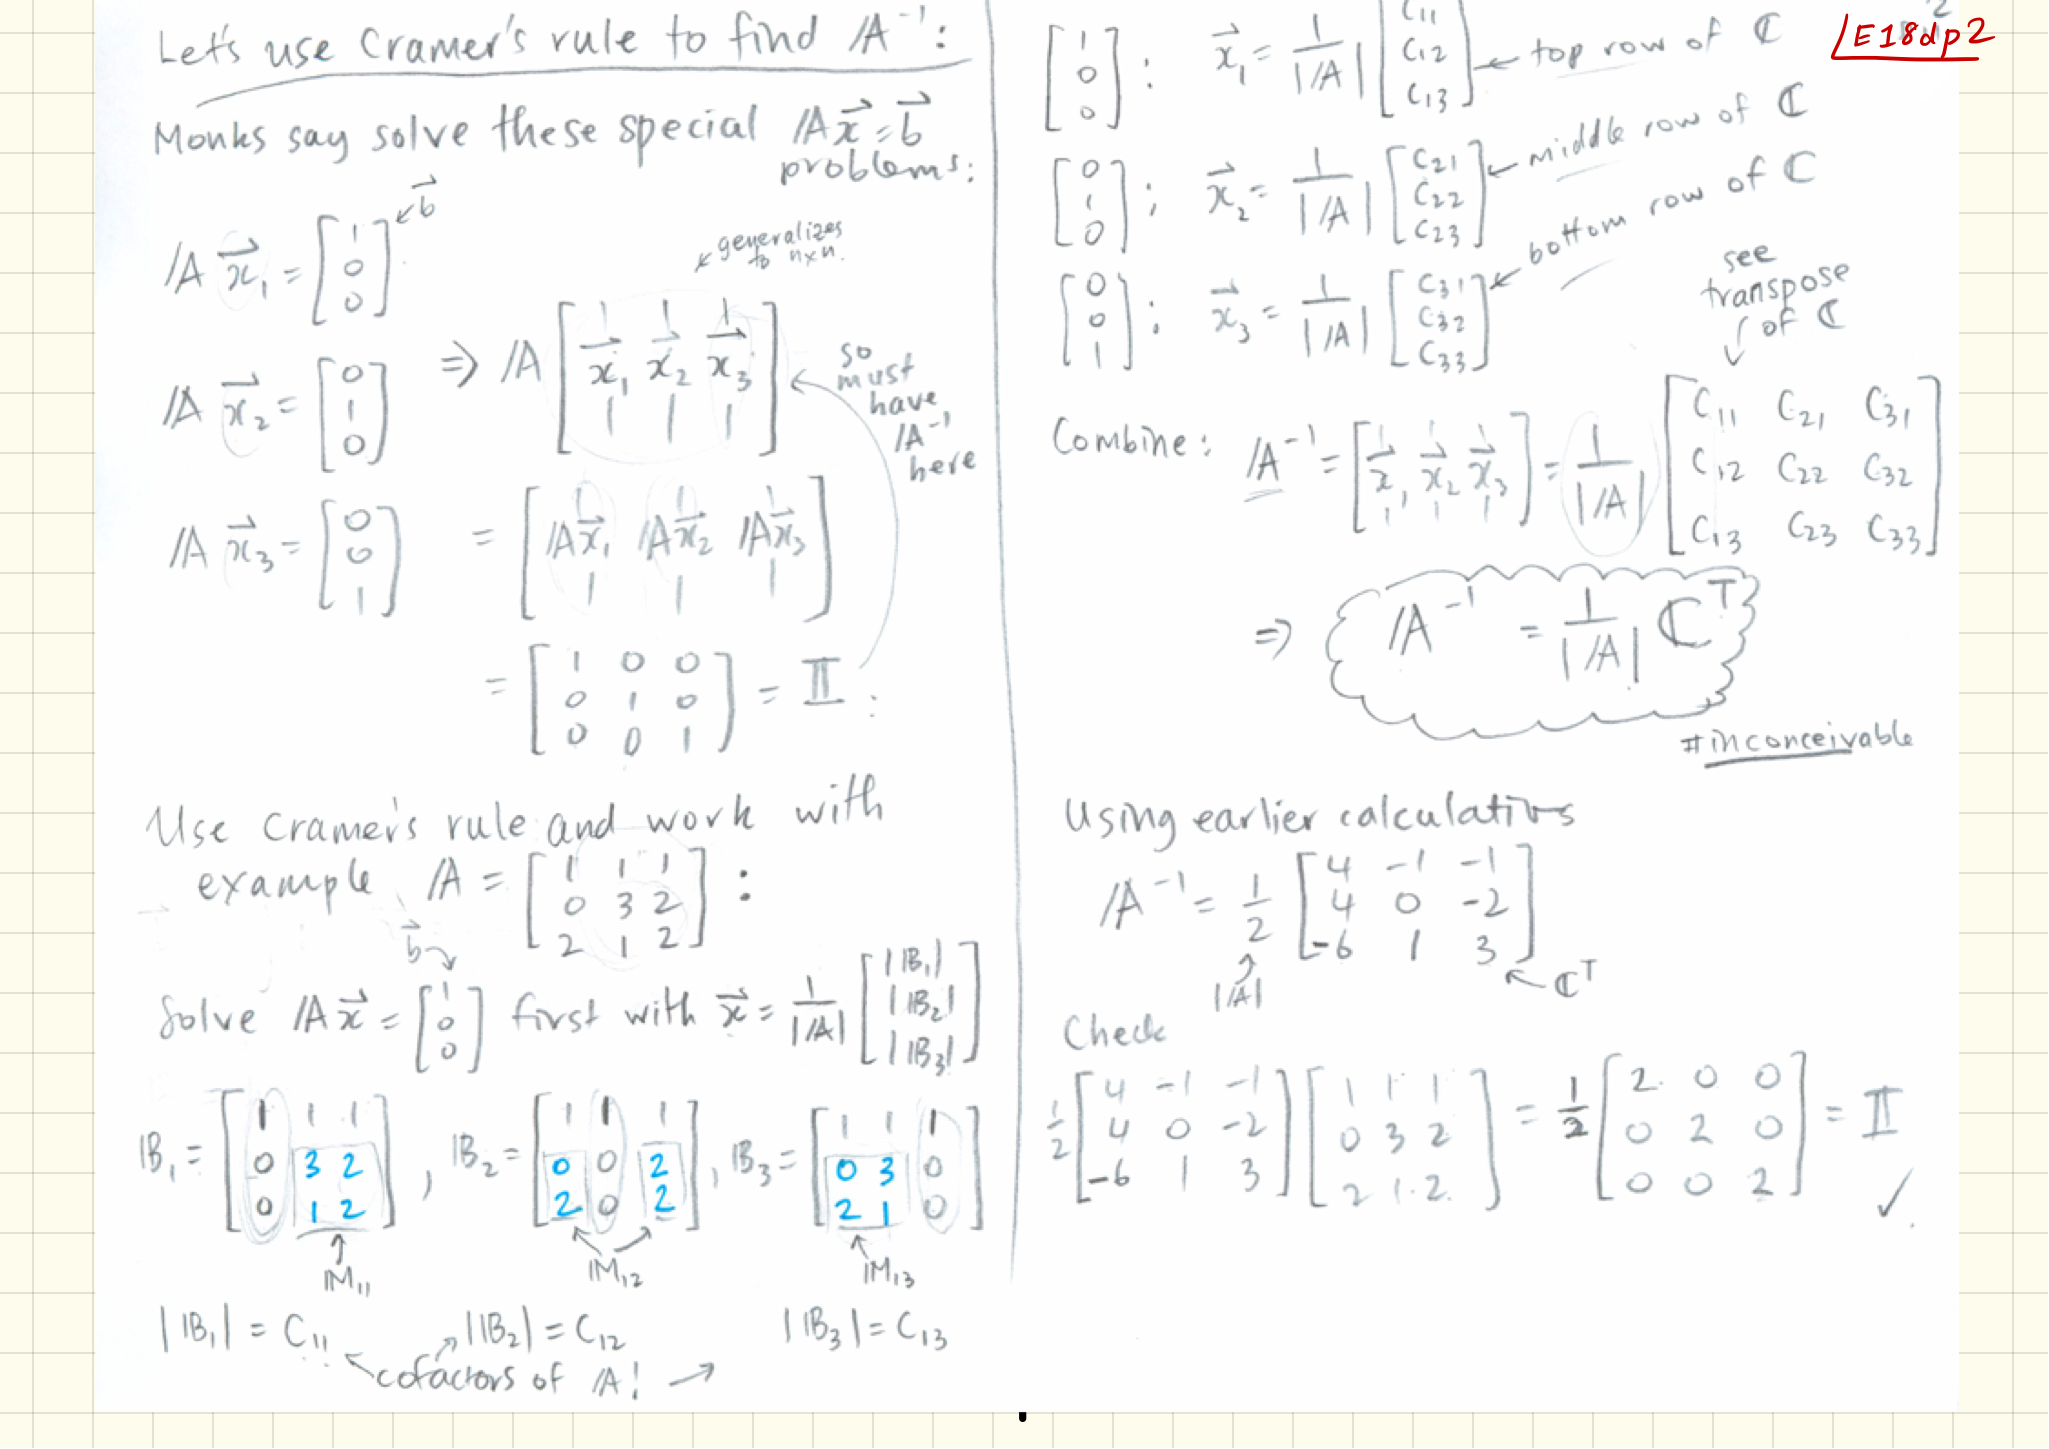 Let's use Cramer's rule to find A⁻¹:
Monks say solve these special Ax⃗ = b⃗
problems:
Ax⃗₁ = [1 0 0] ← b⃗
Ax⃗₂ = [0 1 0]
Ax⃗₃ = [0 0 1]
↙ generalizes
to n×n.
⇒ A [x⃗₁ x⃗₂ x⃗₃]
so
must
have
A⁻¹
here
= [Ax⃗₁ Ax⃗₂ Ax⃗₃]
= [1 0 0
0 1 0
0 0 1] = I
Use Cramer's rule and work with
example A = [1 1 1
0 3 2
2 1 2] :
b⃗
Solve Ax⃗ = [1 0 0] first with x⃗ = 1/|A| [|B₁| |B₂| |B₃|]
B₁ = [1 1 1
0 3 2
0 1 2] , B₂ = [1 1 1
0 0 2
2 0 2] , B₃ = [1 1 1
0 3 0
2 1 0]
M₁₁ M₁₂ M₁₃
|B₁| = C₁₁ |B₂| = C₁₂ |B₃| = C₁₃
cofactors of A! →
E18dp2
[1 0 0] : x⃗₁ = 1/|A| [C₁₁ C₁₂ C₁₃] ← top row of C
[0 1 0] : x⃗₂ = 1/|A| [C₂₁ C₂₂ C₂₃] ← middle row of C
[0 0 1] : x⃗₃ = 1/|A| [C₃₁ C₃₂ C₃₃] ← bottom row of C
see
transpose
of C
Combine: A⁻¹ = [x⃗₁ x⃗₂ x⃗₃] = 1/|A| [C₁₁ C₂₁ C₃₁
C₁₂ C₂₂ C₃₂
C₁₃ C₂₃ C₃₃]
⇒ A⁻¹ = 1/|A| Cᵀ
#inconceivable
Using earlier calculations
A⁻¹ = 1/2 [4 -1 -1
4 0 -2
-6 1 3]
|A| ← Cᵀ
Check
1/2 [4 -1 -1
4 0 -2
-6 1 3] [1 1 1
0 3 2
2 1 2] = 1/2 [2 0 0
0 2 0
0 0 2] = I
✓